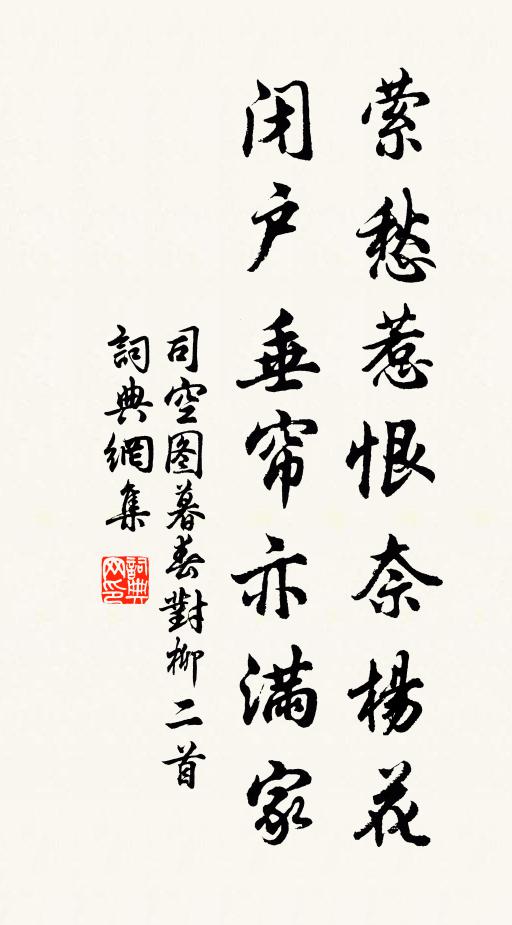 萦愁惹恨奈楊花
闭户垂帘亦满家
司空图暮春對柳二首
詞典網集
詞典网印